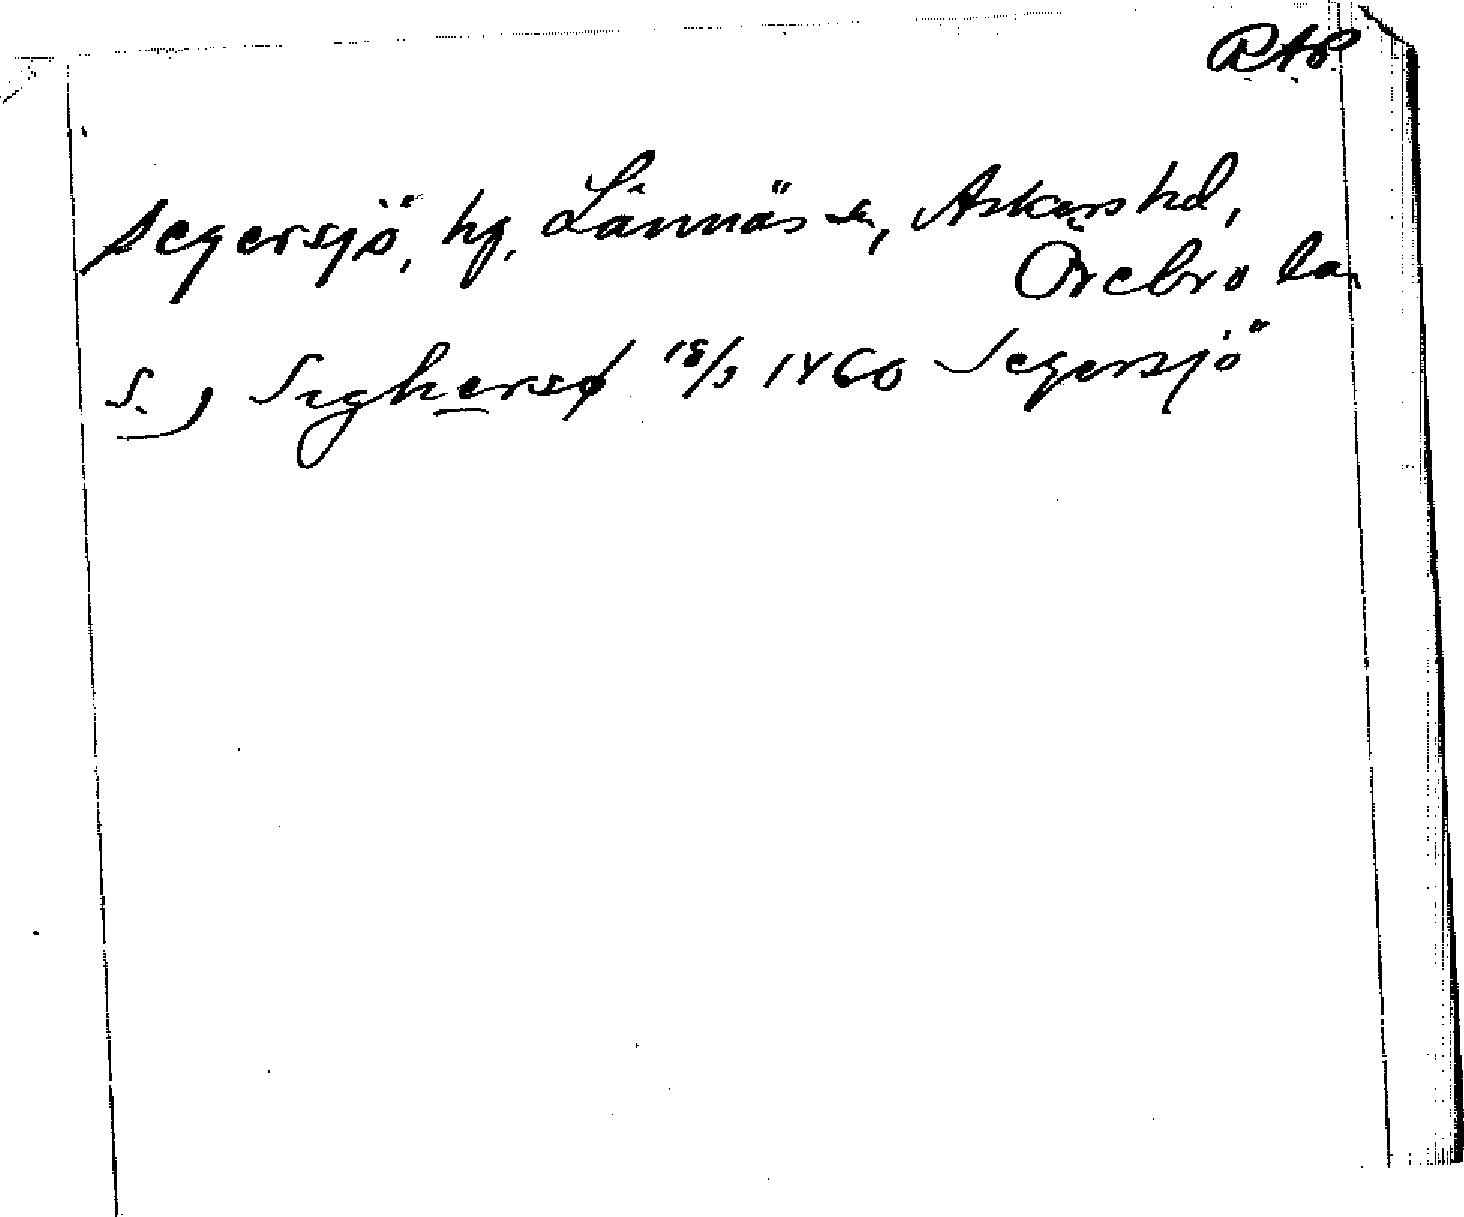 RAP
Segersjö, hg, Lännäs sn, Askers hd,
Örebro län
S. ) Sighersø 18/3 1460 Segersjö